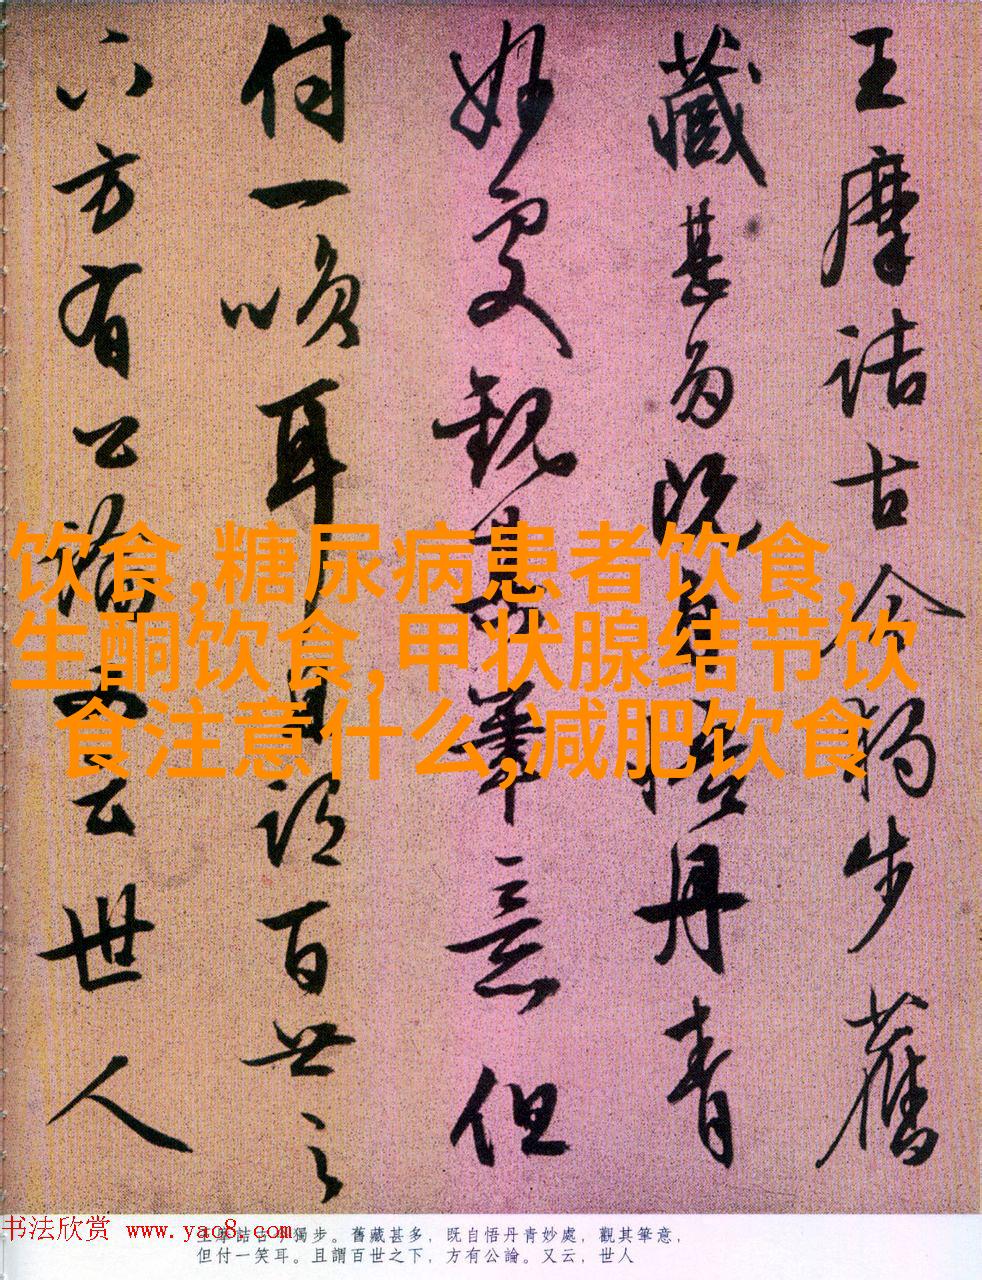 王摩詰古今獨步舊
藏甚多既自悟丹青
妙處觀其筆意但
付一咲耳且謂百世之
下方有公論又云世人
饮食,糖尿病患者饮食,
生酮饮食,甲状腺结节饮
食注意什么,减肥饮食
书法欣赏 www.yac8.com
王摩詰古今獨步。舊藏甚多，既自悟丹青妙處，觀其筆意，
但付一笑耳。且謂百世之下，方有公論。又云，世人